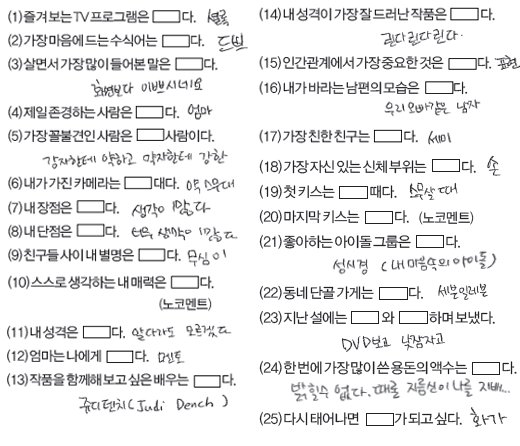 (1) 즐겨 보는 TV 프로그램은 □다. 셜록
(2) 가장 마음에 드는 수식어는 □다. 드립
(3) 살면서 가장 많이 들어본 말은 □다.
화면보다 이쁘시네요
(4) 제일 존경하는 사람은 □다. 엄마
(5) 가장 꼴불견인 사람은 □사람이다.
강자한테 약하고 약자한테 강한
(6) 내가 가진 카메라는 □대다. 약 스무대
(7) 내 장점은 □다. 생각이 많다
(8) 내 단점은 □다. 너무 생각이 많다
(9) 친구들 사이 내 별명은 □다. 무심이
(10) 스스로 생각하는 내 매력은 □다.
(노코멘트)
(11) 내 성격은 □다. 알다가도 모르겠다
(12) 엄마는 나에게 □다. 멘토
(13) 작품을 함께해 보고 싶은 배우는 □다.
쥬디 덴치 (Judi Dench)
(14) 내 성격이 가장 잘 드러난 작품은 □다.
린다린다린다.
(15) 인간관계에서 가장 중요한 것은 □다. 표현
(16) 내가 바라는 남편의 모습은 □다.
우리 오빠같은 남자
(17) 가장 친한 친구는 □다. 세미
(18) 가장 자신 있는 신체 부위는 □다. 손
(19) 첫 키스는 □때다. 스무살 때
(20) 마지막 키스는 □다. (노코멘트)
(21) 좋아하는 아이돌 그룹은 □다.
성시경 (내 마음속의 아이돌)
(22) 동네 단골 가게는 □다. 세븐일레븐
(23) 지난 설에는 □와 □하며 보냈다.
DVD보고 낮잠자고
(24) 한 번에 가장 많이 쓴 용돈의 액수는 □다.
밝힐수 없다. 때론 지름신이 나를 지배...
(25) 다시 태어나면 □가 되고 싶다. 화가